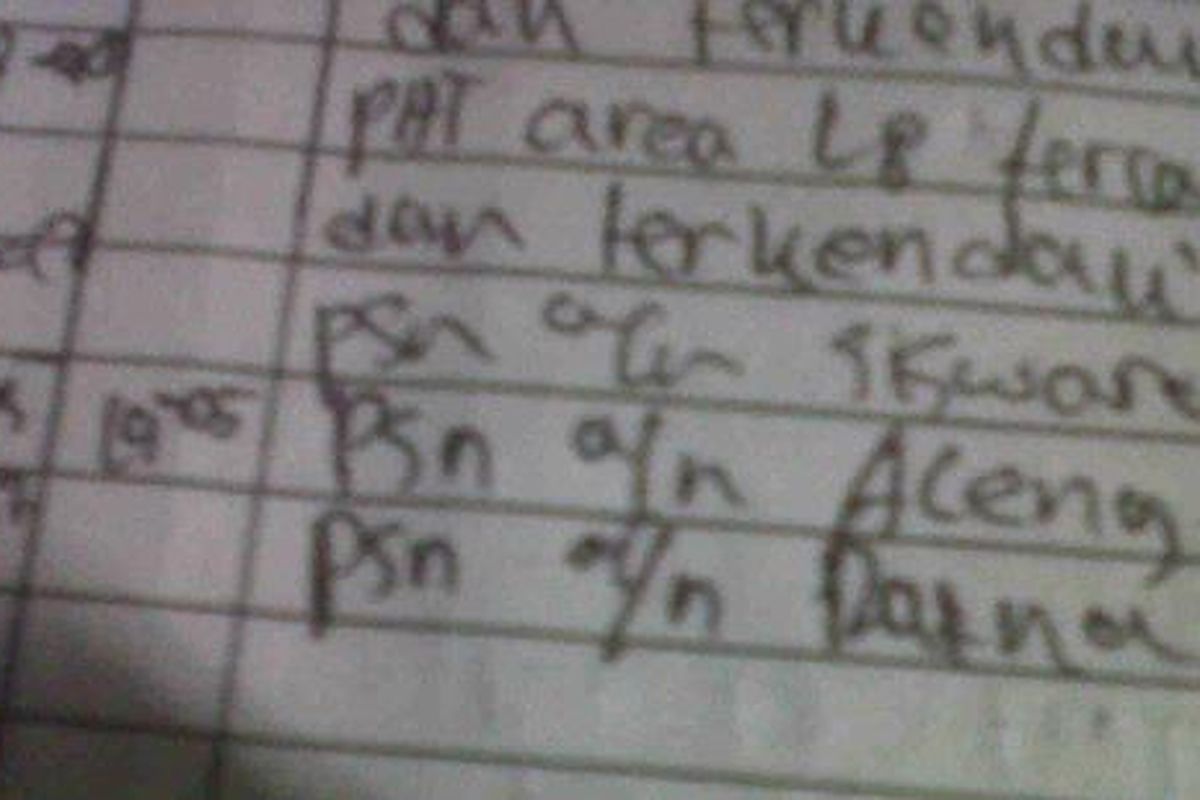 dan terkendali
PAT area L8 terra
dan terkendali
psn a/n
19.05 Psn a/n Aceng
Psn a/n Ratna